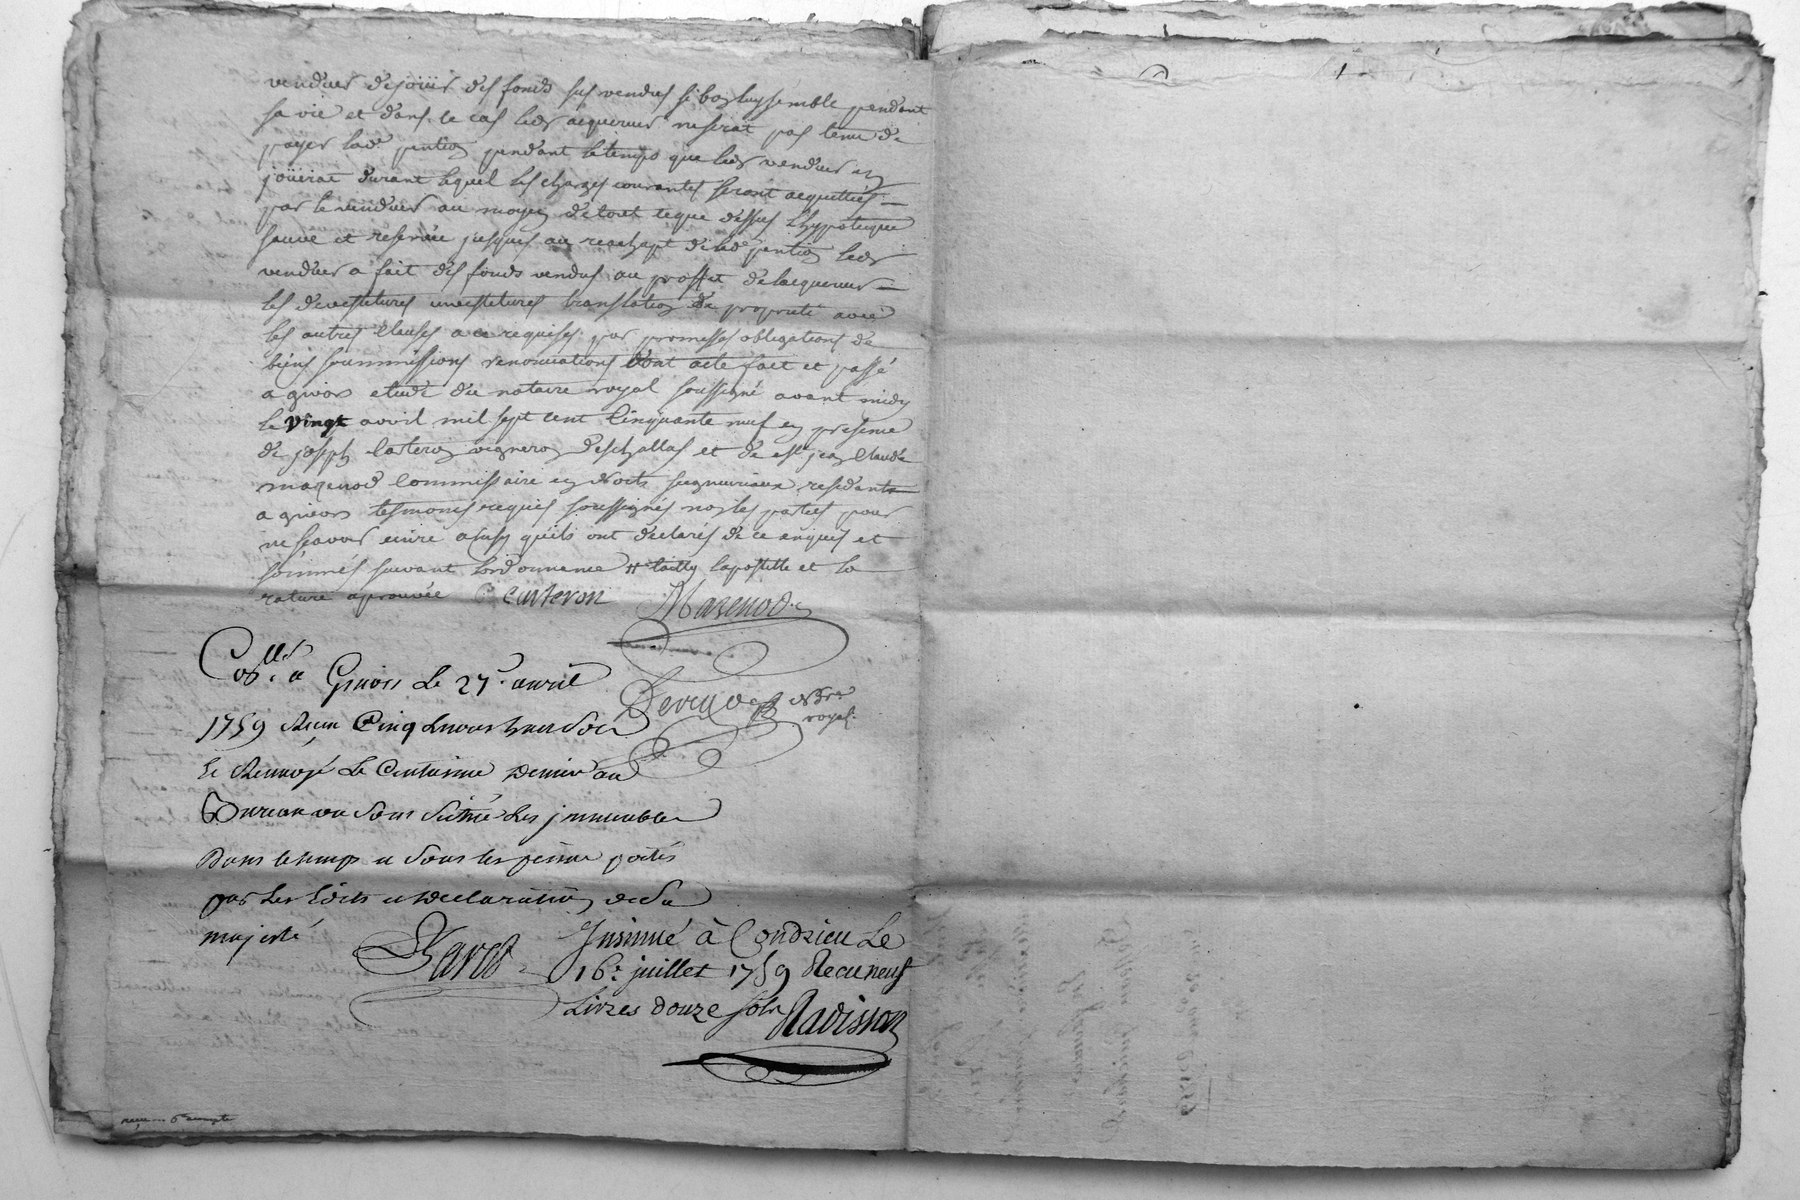 vendeur de jouir des fonds sus vendus si bon luy semble pendant
sa vie et dans le cas ledr acquereur ne serat pas tenu de
payer lade pention pendant le temps que ledr vendeur en
joüirat durant lequel les charges courantes seront acquittées
par le vendeur au moyen de tout ceque dessus l'hypoteque
sauve et reservée jusques au reachapt de lade pention ledr
vendeur a fait des fonds vendus au proffit de lacquereur
les devestitures investitures translation de proprieté avec
les autres clauses a ce requises par promesses obligations de
biens soummissions renonciations dont acte fait et passé
a givors etude du notaire royal soussigné avant midy
le vingt avril mil sept cent cinquante neuf en presence
de joseph Carteron vigneron deschallas et de sr jean Claude
mazenod Commissaire en droits seigneuriaux residents
a givors tesmoins requis soussignés non les parties pour
ne scavoir ecrire ainsy quils ont declarés de ce enquis et
sommés suivant lordonnance # lapostille et la
rature aprouvée Carteron Mazenod
Collé a Givors Le 27e avril
1759 Recu Cinq livres
et Renvoyé Le Centieme Denier au
Bureau ou sont situés Les immeubles
Dans le temps et sous les peines portés
par Les Edits et Declarations de Sa
majesté
royal
Insinué à Condrieu Le
16e juillet 1759 Recu neuf
Livres douze sols Ravisson